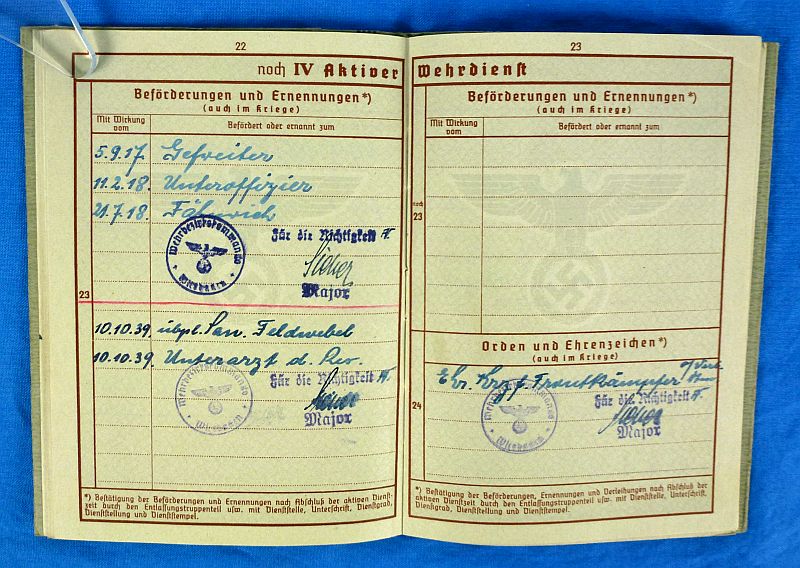 22
noch IV Aktiver
Beförderungen und Ernennungen*)
(auch im Kriege)
Mit Wirkung vom
Befördert oder ernannt zum
5.9.17. Gefreiter
11.2.18. Unteroffizier
21.7.18. Fähnrich
Wehrbezirkskommando
Wiesbaden
Für die Richtigkeit
Major
23
10.10.39. übpl. San. Feldwebel
10.10.39. Unterarzt d. Res.
Wehrbezirkskommando
Wiesbaden
Für die Richtigkeit
Major
*) Bestätigung der Beförderungen und Ernennungen nach Abschluß der aktiven Dienst-
zeit durch den Entlassungstruppenteil usw. mit Dienststelle, Unterschrift, Dienstgrad,
Dienststellung und Dienststempel.
23
Wehrdienst
Beförderungen und Ernennungen*)
(auch im Kriege)
Mit Wirkung vom
Befördert oder ernannt zum
noch
23
Orden und Ehrenzeichen*)
(auch im Kriege)
Frontkämpfer
24
Wehrbezirkskommando
Wiesbaden
Für die Richtigkeit
Major
*) Bestätigung der Beförderungen, Ernennungen und Verleihungen nach Abschluß der
aktiven Dienstzeit durch den Entlassungstruppenteil usw. mit Dienststelle, Unterschrift,
Dienstgrad, Dienststellung und Dienststempel.